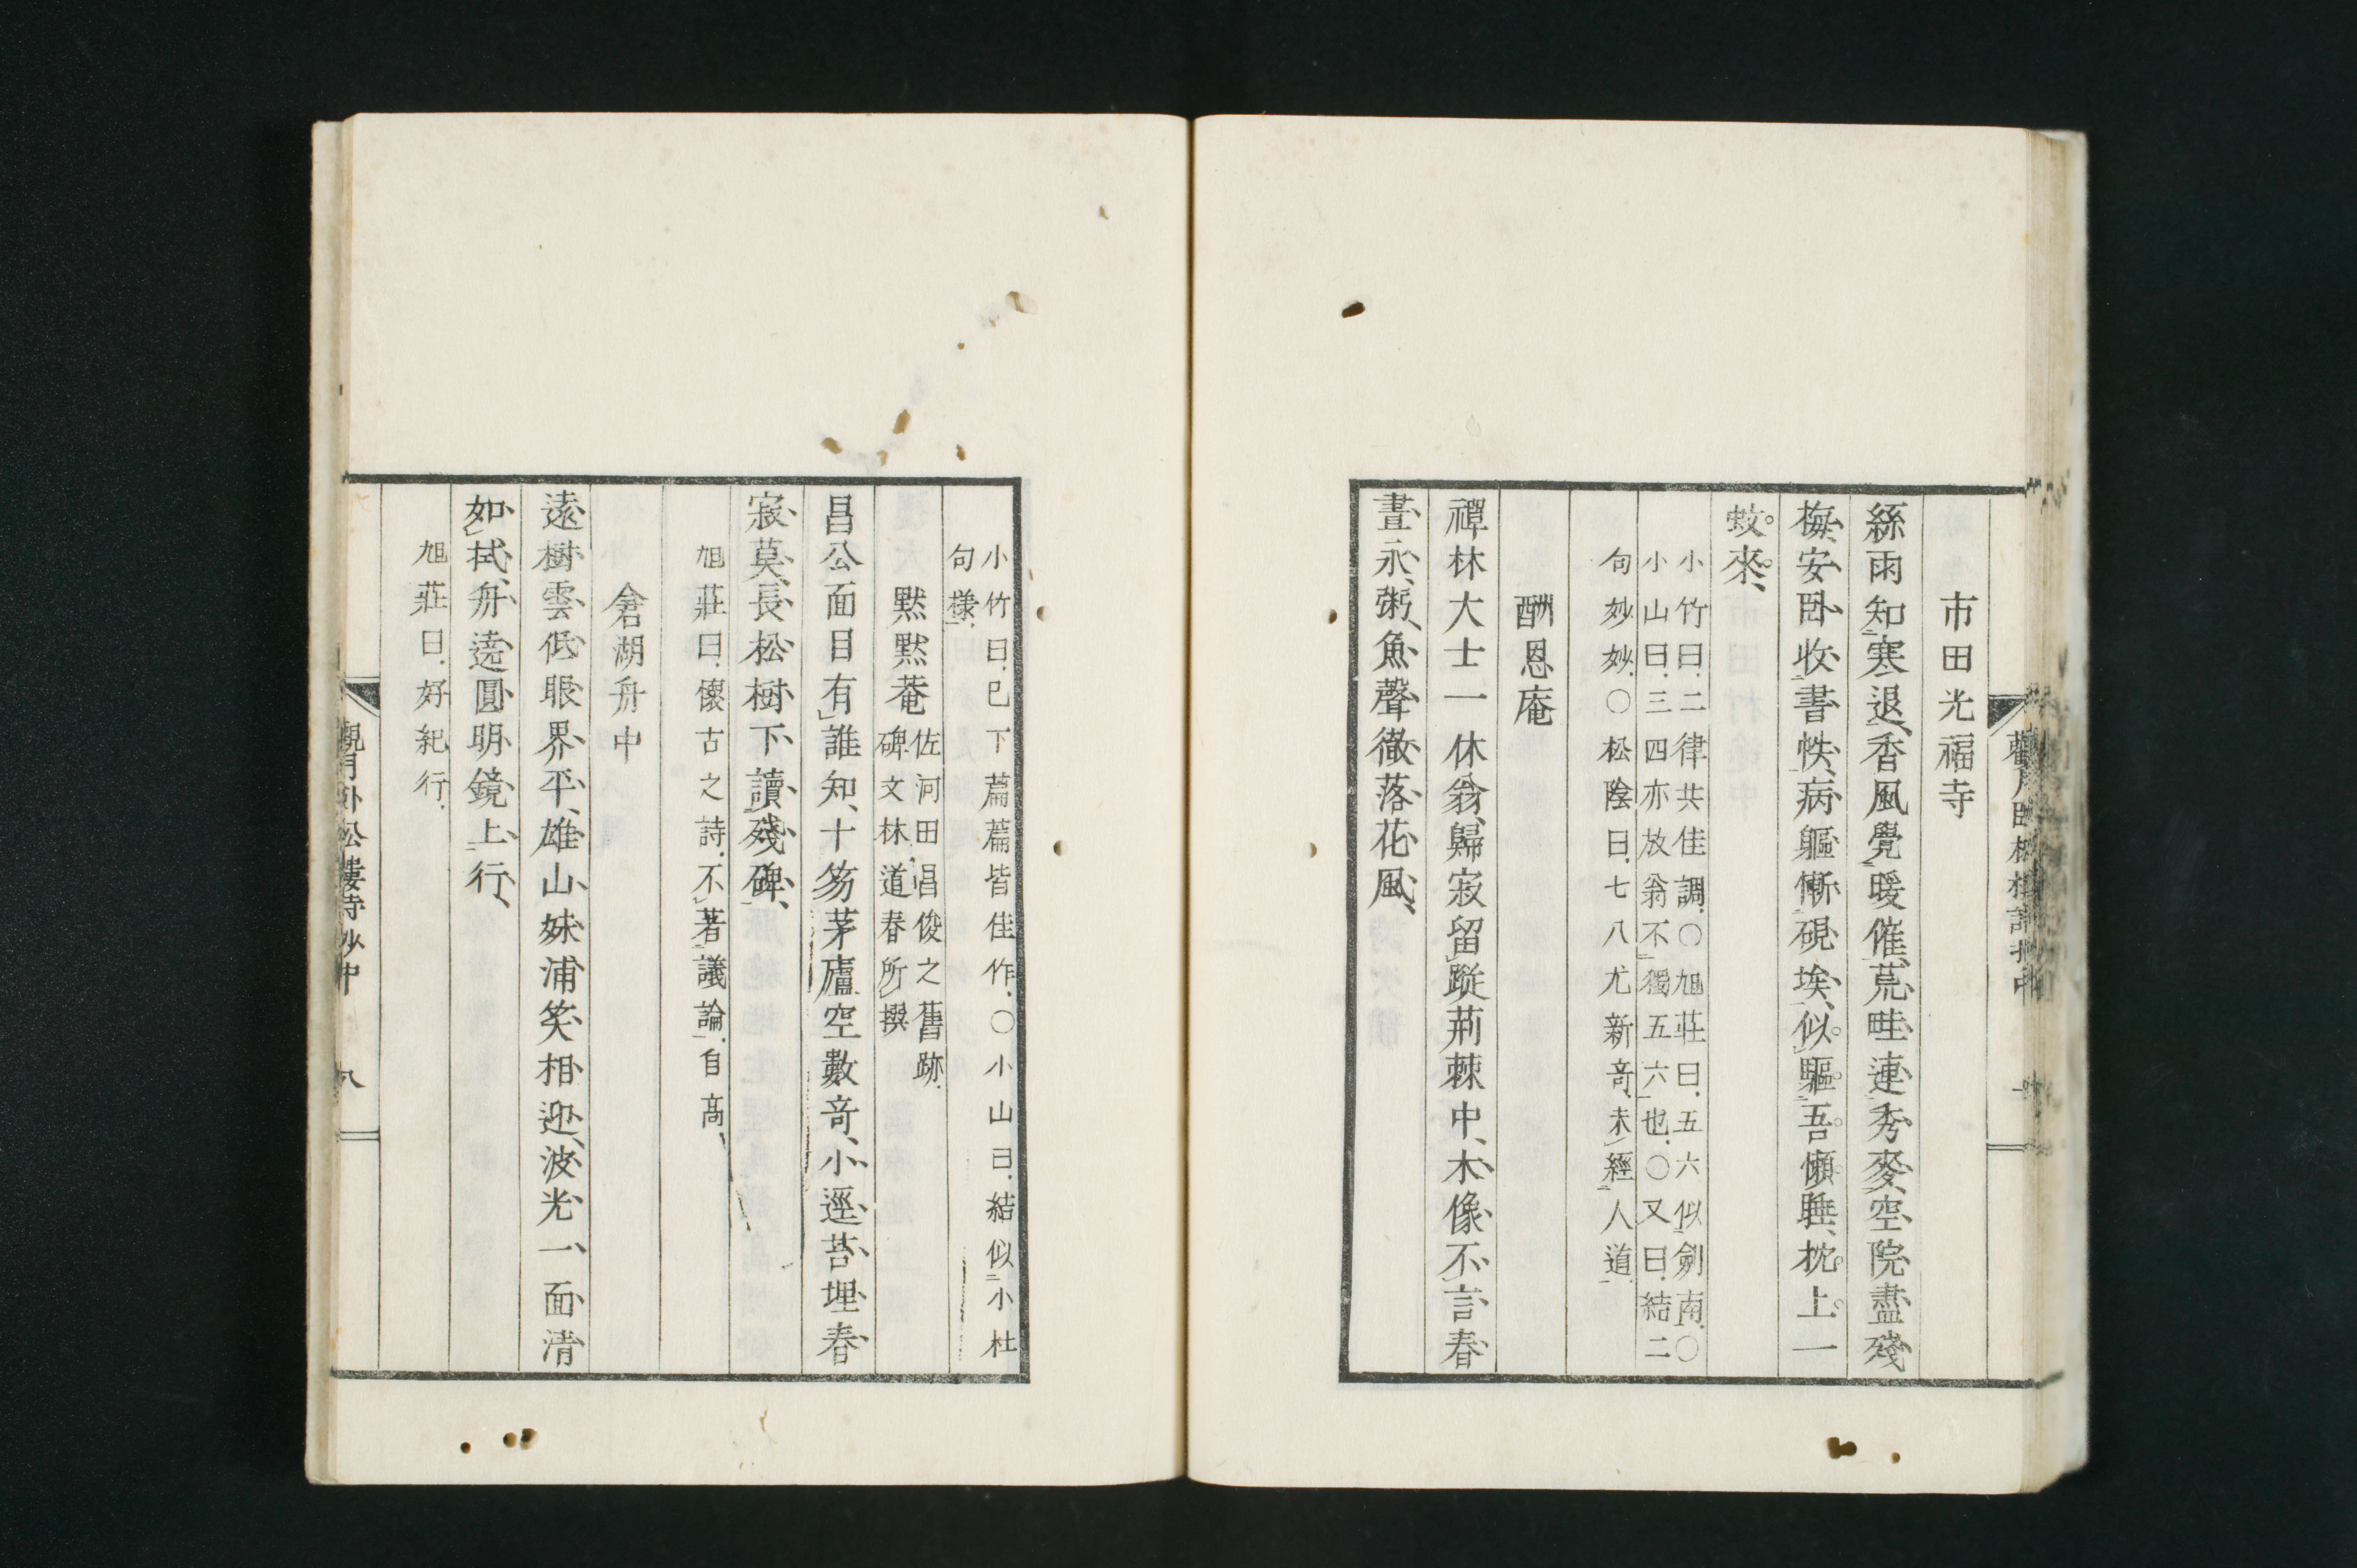 市田光福寺
絲雨知寒退、香風覺暖催、荒畦連秀麥、空院盡殘
梅、安臥收書帙、病軀慚硯埃、似驅吾懶睡、枕上一
蚊來、
小竹曰、二律共佳調、○旭莊曰、五六似劍南、○
小山曰、三四亦放翁不獨五六也、○又曰、結二
句妙妙、○松陰曰、七八尤新奇、未經人道
酬恩庵
禪林大士一休翁、歸寂留蹤荊棘中、木像不言春
晝永、粥魚聲徹落花風、
小竹曰、已下篇篇皆佳作、○小山曰、結似小杜
句樣、
默默菴
佐河田昌俊之舊跡、
碑文林道春所撰
昌公面目有誰知、十笏茅廬空數奇、小逕苔埋春
寂莫、長松樹下讀殘碑、
旭莊曰、懷古之詩、不著議論、自高、
倉湖舟中
遠樹雲低眼界平、雄山妹浦笑相迎、波光一面淸
如拭、舟遶圓明鏡上行、
旭莊曰、好紀行、
觀月臥松樓詩抄中
八